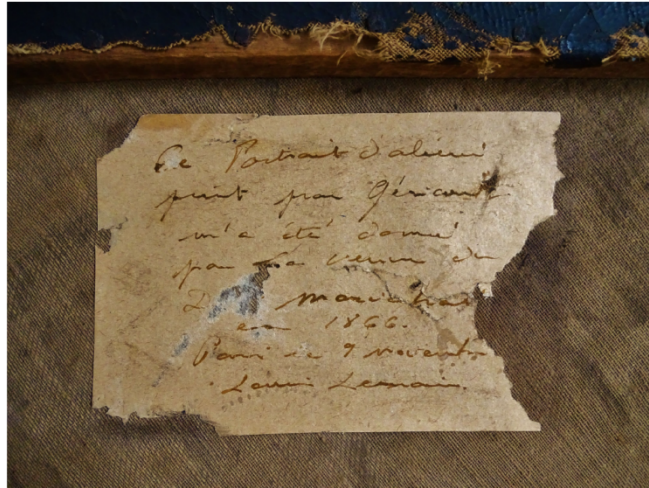 Ce Portrait d'aliéné
peint par Géricault
m'a été donné
par la veuve du
Dr
en 1866.
Paris le 9 novembre
Louis Lemain.